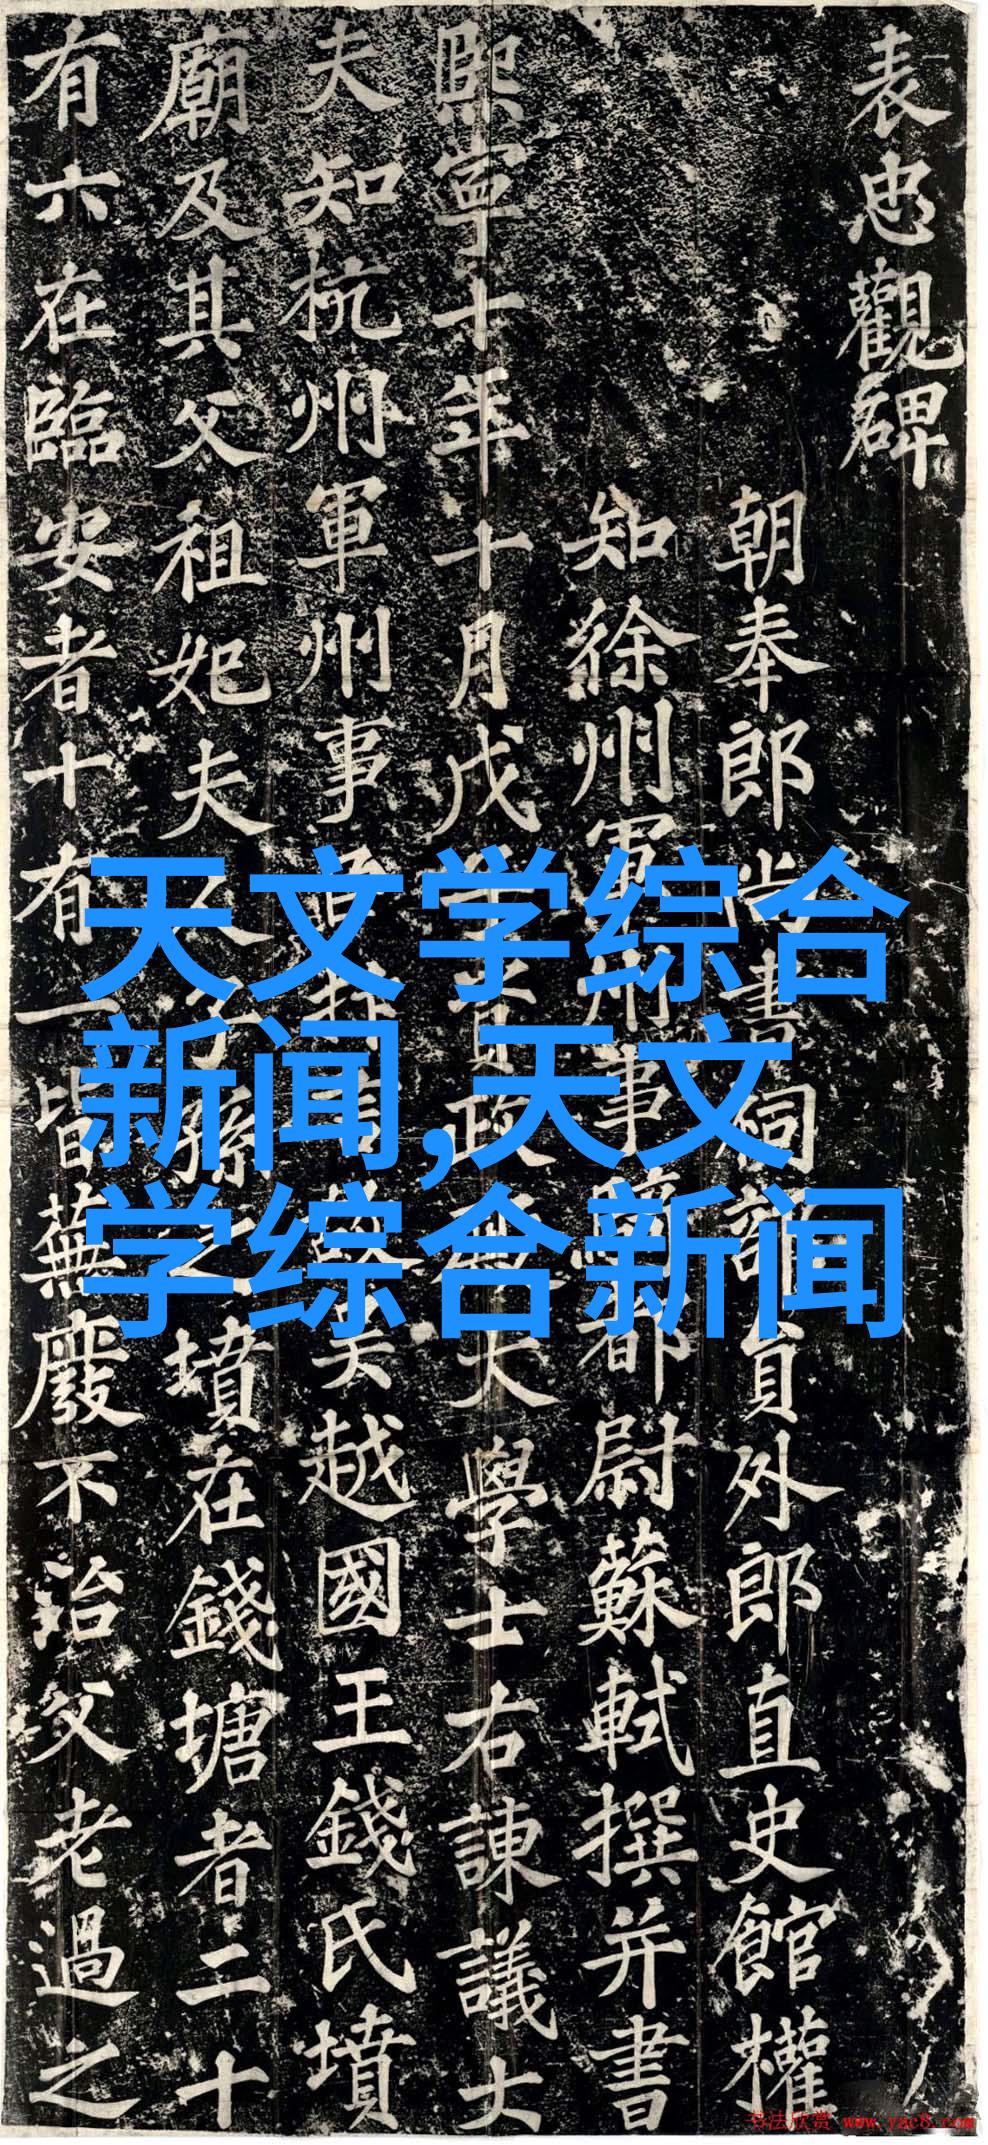 表忠觀碑
朝奉郎尚書祠部員外郎直史館權
知徐州軍州事騎都尉蘇軾撰并書
熙寧十年十月戊子資政殿大學士右諫議大
夫知杭州軍州事臣抃言故吳越國王錢氏墳
廟及其父祖妃夫人子孫之墳在錢塘者二十
有六在臨安者十有一皆蕪廢不治父老過之
天文学综合
新闻,天文
学综合新闻
书法欣赏 www.yac8.com